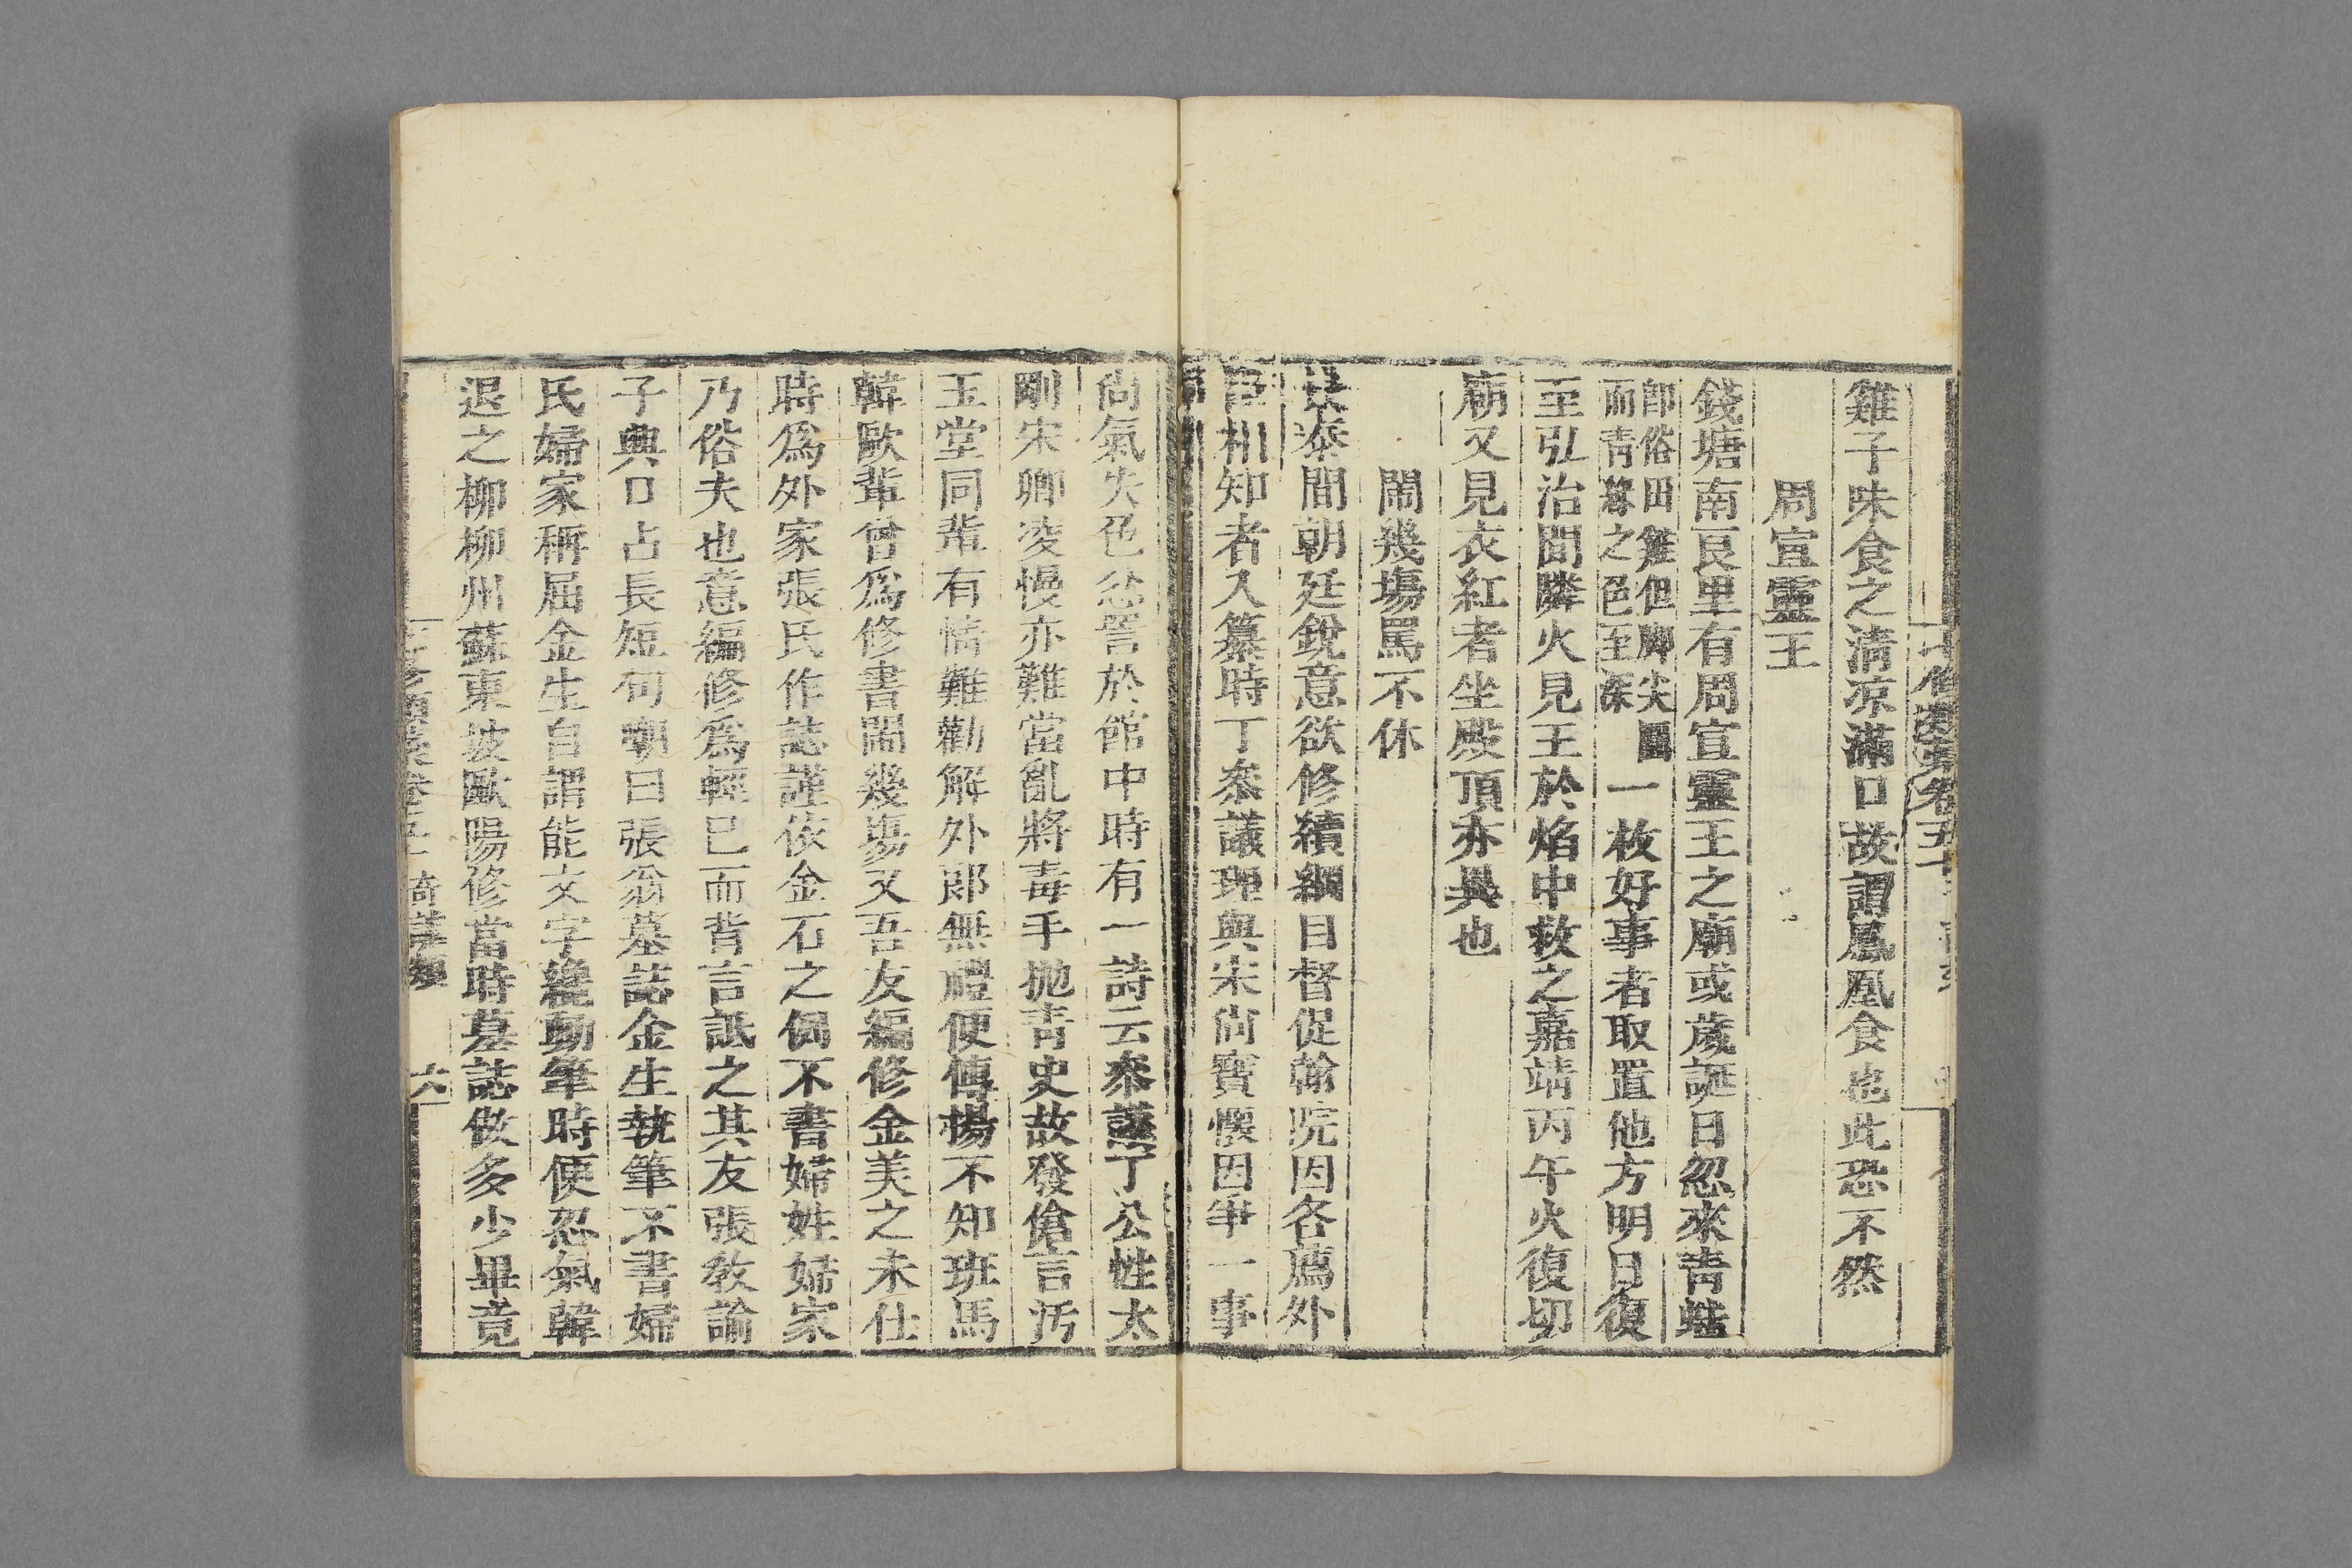 雞子味食之清凉滿口故謂鳳凰食也此恐不然
周宣靈王
錢塘南良里有周宣靈王之廟或歲誕日忽來青蛙
即俗田雞但脚尖圓
而青綠之色至深
一枚好事者取置他方明日復
至弘治間隣火見王於焰中救之嘉靖丙午火復切
廟又見衣紅者坐殿頂亦異也
鬧幾塲罵不休
景泰間朝廷銳意欲修續綱目督促翰院因各薦外
官相知者入纂時丁泰議珵與宋尚寶懷因爭一事
尚氣失色忿詈於館中時有一詩云泰議丁公性太
剛宋卿凌慢亦難當亂將毒手抛青史故發傖言汚
玉堂同輩有情難勸解外郎無禮便傳揚不知班馬
韓歐輩曾爲修書鬧幾塲又吾友編修金美之未仕
時爲外家張氏作誌謹依金石之例不書婦姓婦家
乃俗夫也意編修爲輕已而背言詆之其友張教諭
子興口占長短句嘲曰張翁墓誌金生執筆不書婦
氏婦家稱屈金生自謂能文字纔動筆時便忍氣韓
退之柳柳州蘇東坡歐陽修當時墓誌做多少畢竟
奇謔類
六